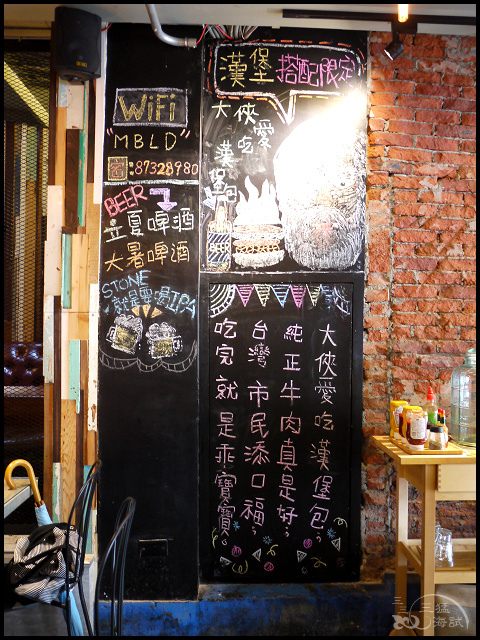 WiFi
"MBLD"
密:87328980
BEER
立夏啤酒
大暑啤酒
STONE
就是要喝IPA
漢堡搭配限定
大俠愛吃
漢堡包
大俠愛吃漢堡包,
純正牛肉真是好,
台灣市民添口福,
吃完就是乖寶寶。
三猛海試